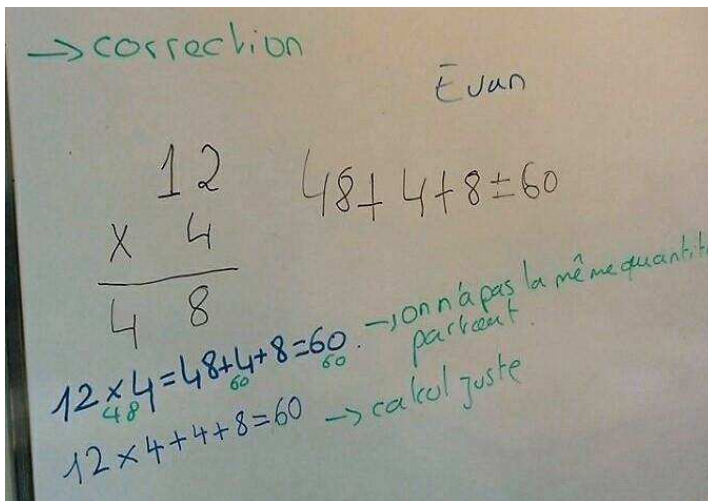 → correction
Evan
12
x 4
48
48+4+8=60
12 x 4 = 48+4+8=60 → on n'a pas la même quantité
partout.
48 60 60
12 x 4 + 4 + 8 = 60 → calcul juste